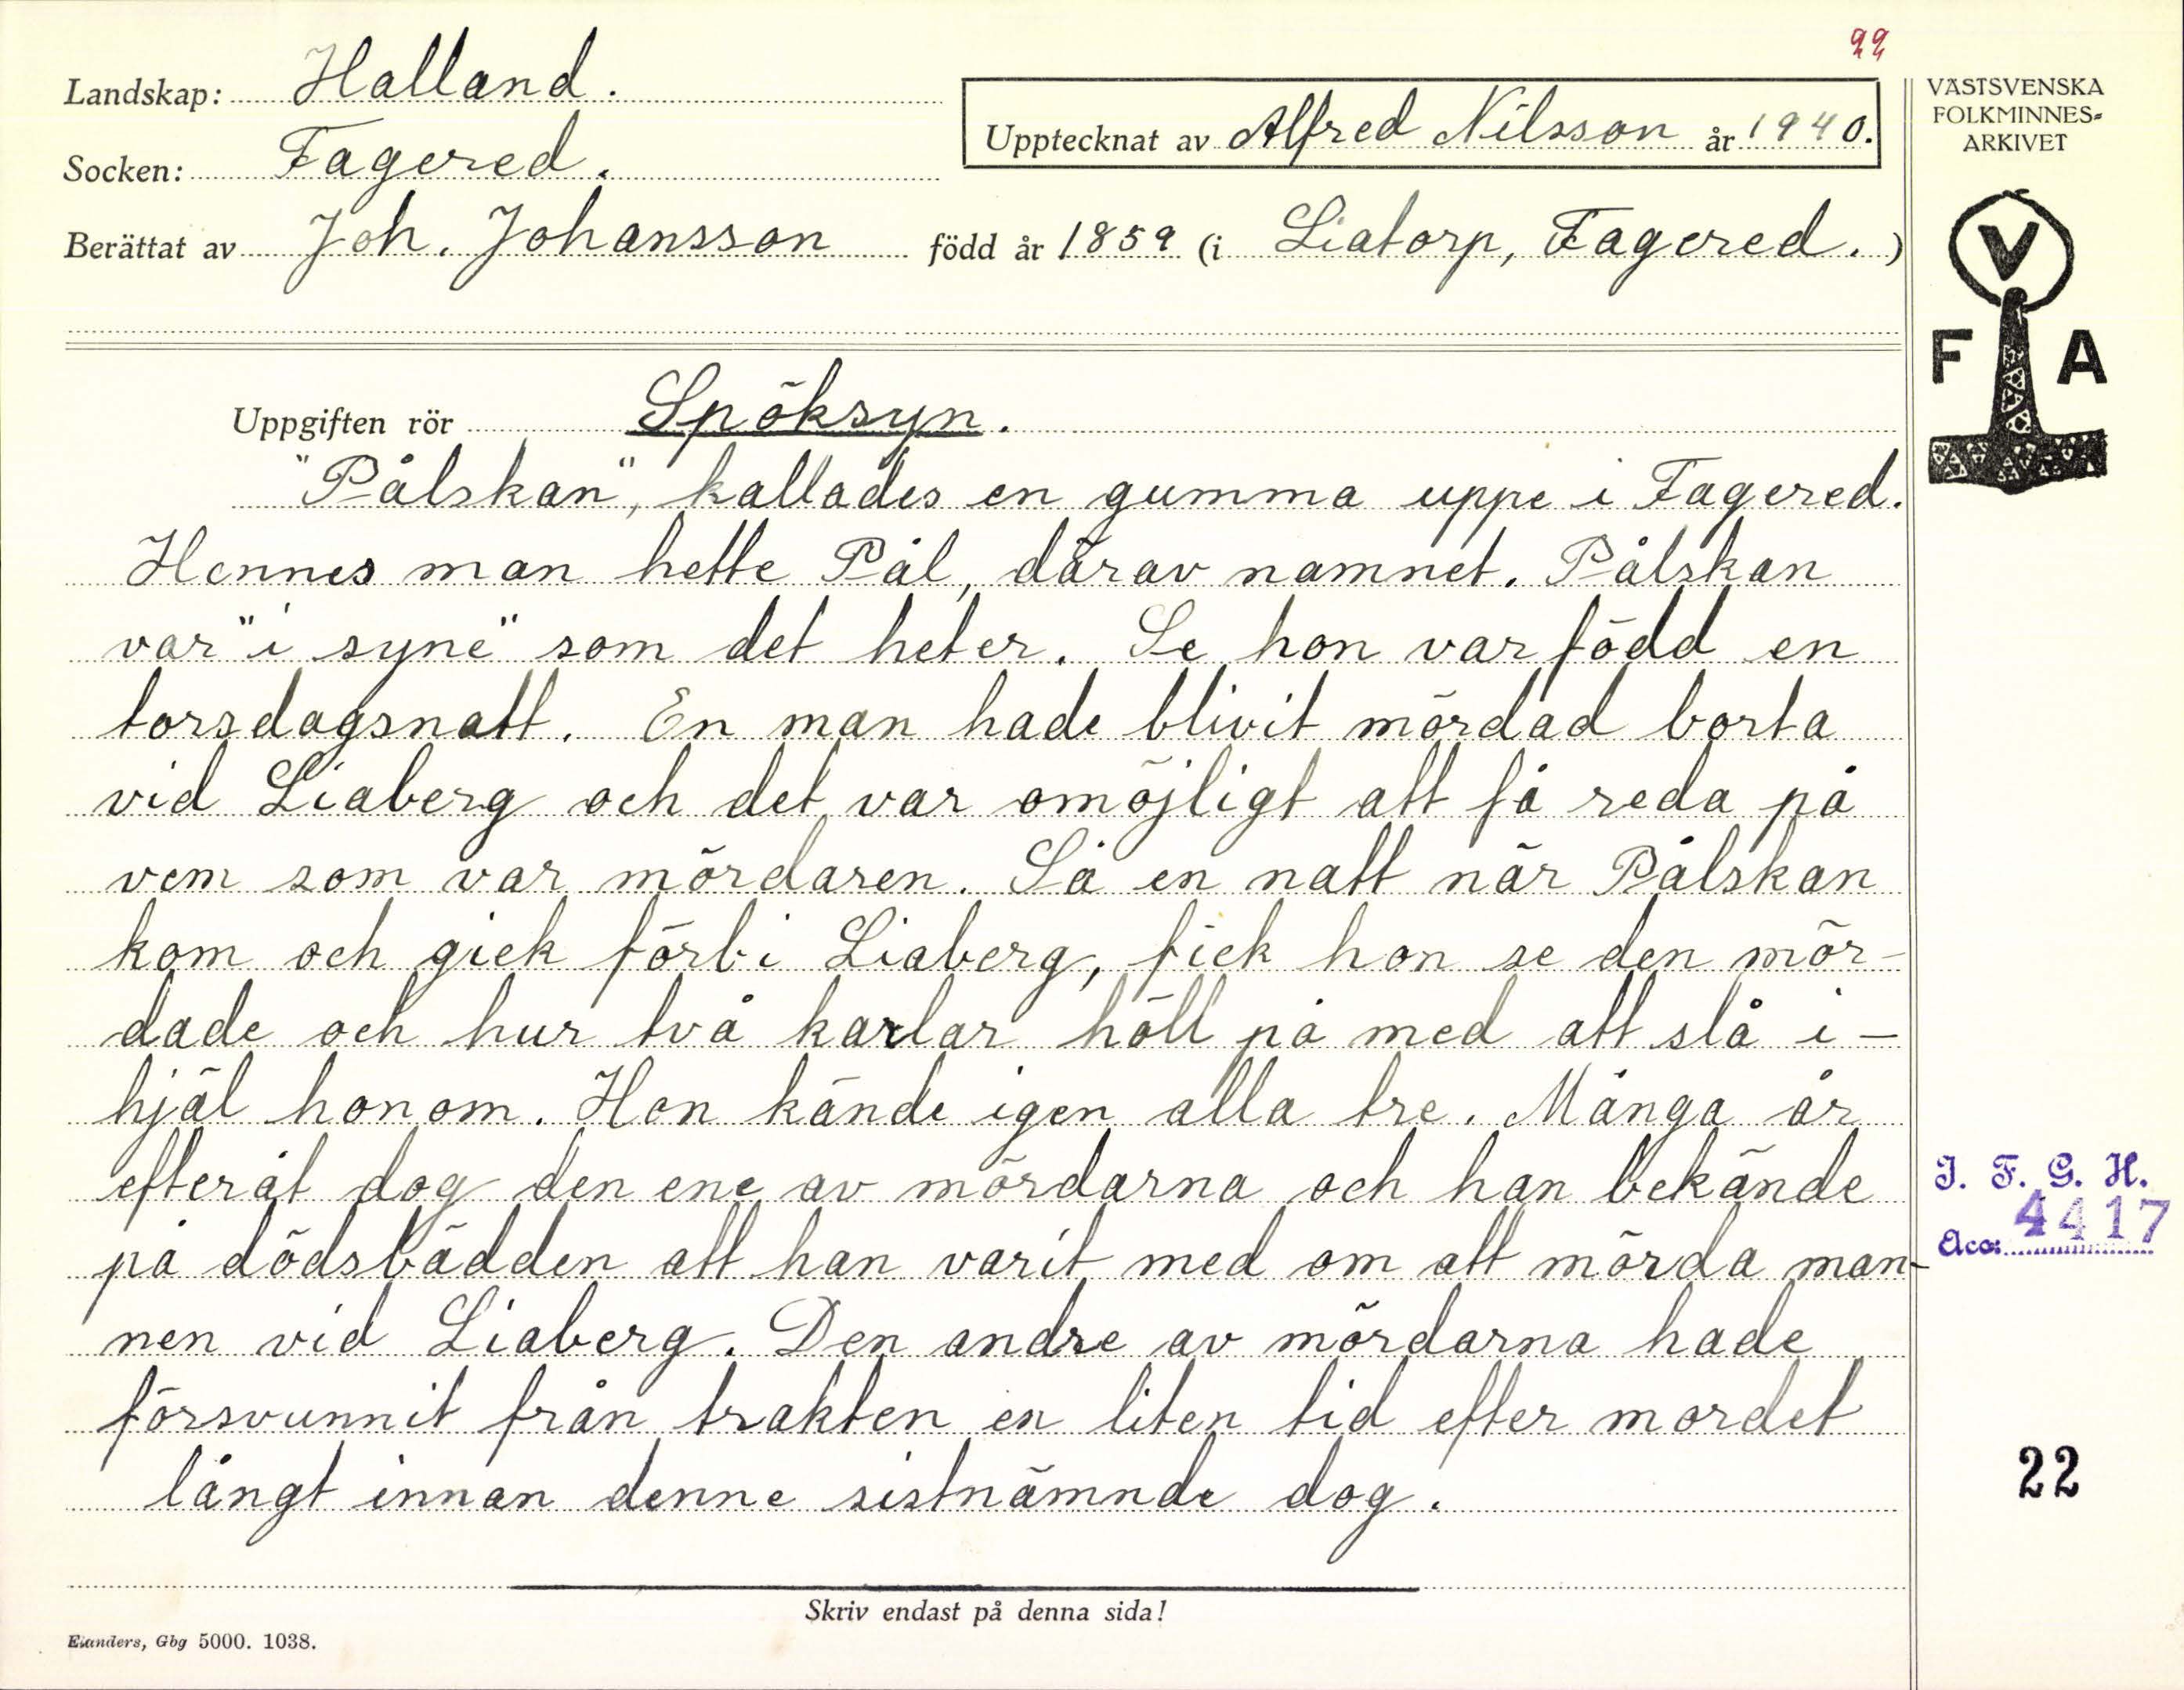 22
Landskap: Halland.
Upptecknat av Alfred Nilsson år 1940.
Socken: Fagered.
Berättat av Joh. Johansson född år 1859 (i Liatorp, Fagered.)
VÄSTSVENSKA
FOLKMINNES-
ARKIVET
V
F A
Uppgiften rör Spöksyn.
"Pålskan", kallades en gumma uppe i Fagered.
Hennes man hette Pål, därav namnet. Pålskan
var "i syne" som det heter. Se hon var född en
torsdagsnatt. En man hade blivit mördad borta
vid Liaberg och det var omöjligt att få reda på
vem som var mördaren. Så en natt när Pålskan
kom och gick förbi Liaberg, fick hon se den mör-
dade och hur två karlar höll på med att slå i-
hjäl honom. Hon kände igen alla tre. Många år
efteråt dog den ene av mördarna och han bekände
på dödsbädden att han varit med om att mörda man-
nen vid Liaberg. Den andre av mördarna hade
försvunnit från trakten en liten tid efter mordet
långt innan denne sistnämnde dog.
I. F. G. H.
Acc: 4417
22
Skriv endast på denna sida!
Elanders, Gbg 5000. 1038.